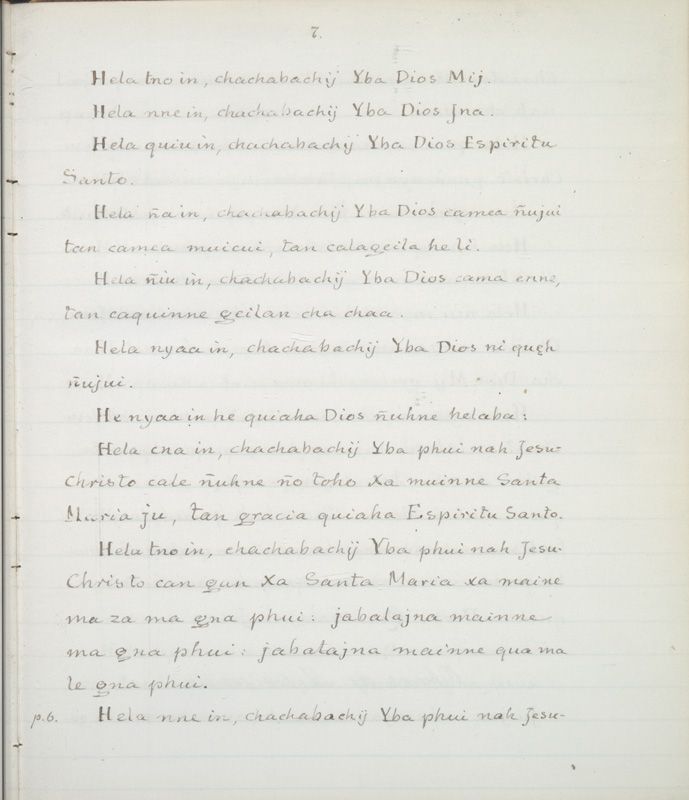 7.
Hela tno in, chachabachij Yba Dios Mij.
Hela nne in, chachabachij Yba Dios Jna.
Hela quiu in, chachabachij Yba Dios Espiritu
Santo.
Hela ña in, chachabachij Yba Dios camea ñujui
tan camea muicui, tan calageila he li.
Hela ñiu in, chachabachij Yba Dios cama enne,
tan caquinne geilan cha chaa.
Hela nyaa in, chachabachij Yba Dios ni quęh
ñujui.
He nyaa in he quiaha Dios ñuhne helaba:
Hela cna in, chachabachij Yba phui nah Jesu-
Christo cale ñuhne ño toho xa muinne Santa
Maria ju, tan gracia quiaha Espiritu Santo.
Hela tno in, chachabachij Yba phui nah Jesu-
Christo can gun xa Santa Maria xa maine
ma za ma gna phui: jabalajna mainne
ma gna phui: jabatajna mainne qua ma
le gna phui.
p.6. Hela nne in, chachabachij Yba phui nah Jesu-